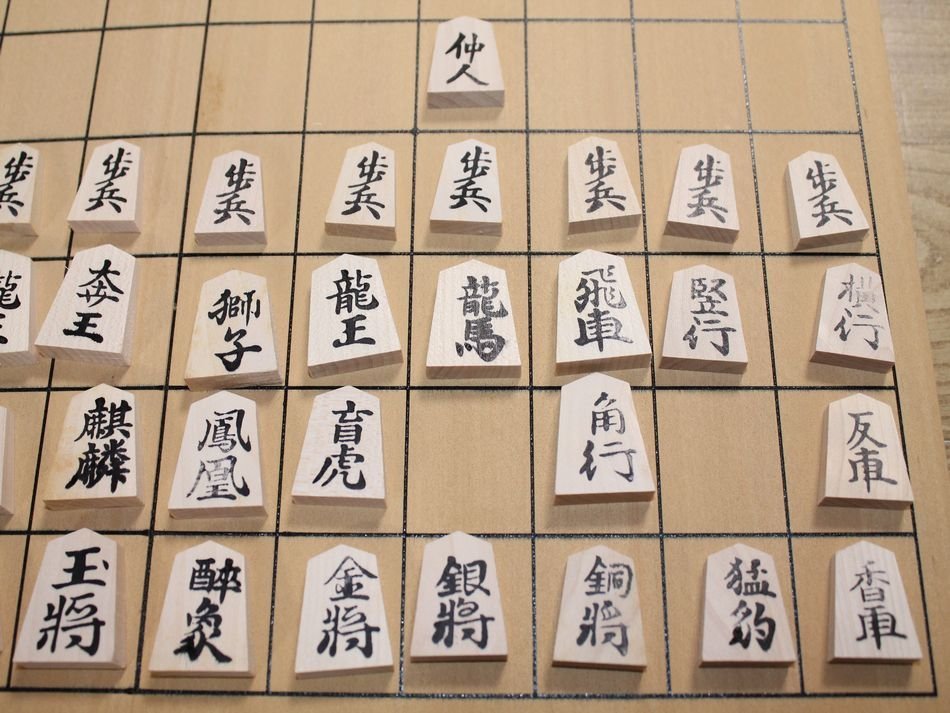 仲人
歩兵 歩兵 歩兵 歩兵 歩兵 歩兵 歩兵 歩兵
龍王 奔王 獅子 龍王 龍馬 飛車 竪行 横行
麒麟 鳳凰 盲虎 角行 反車
玉将 酔象 金将 銀将 銅将 猛豹 香車